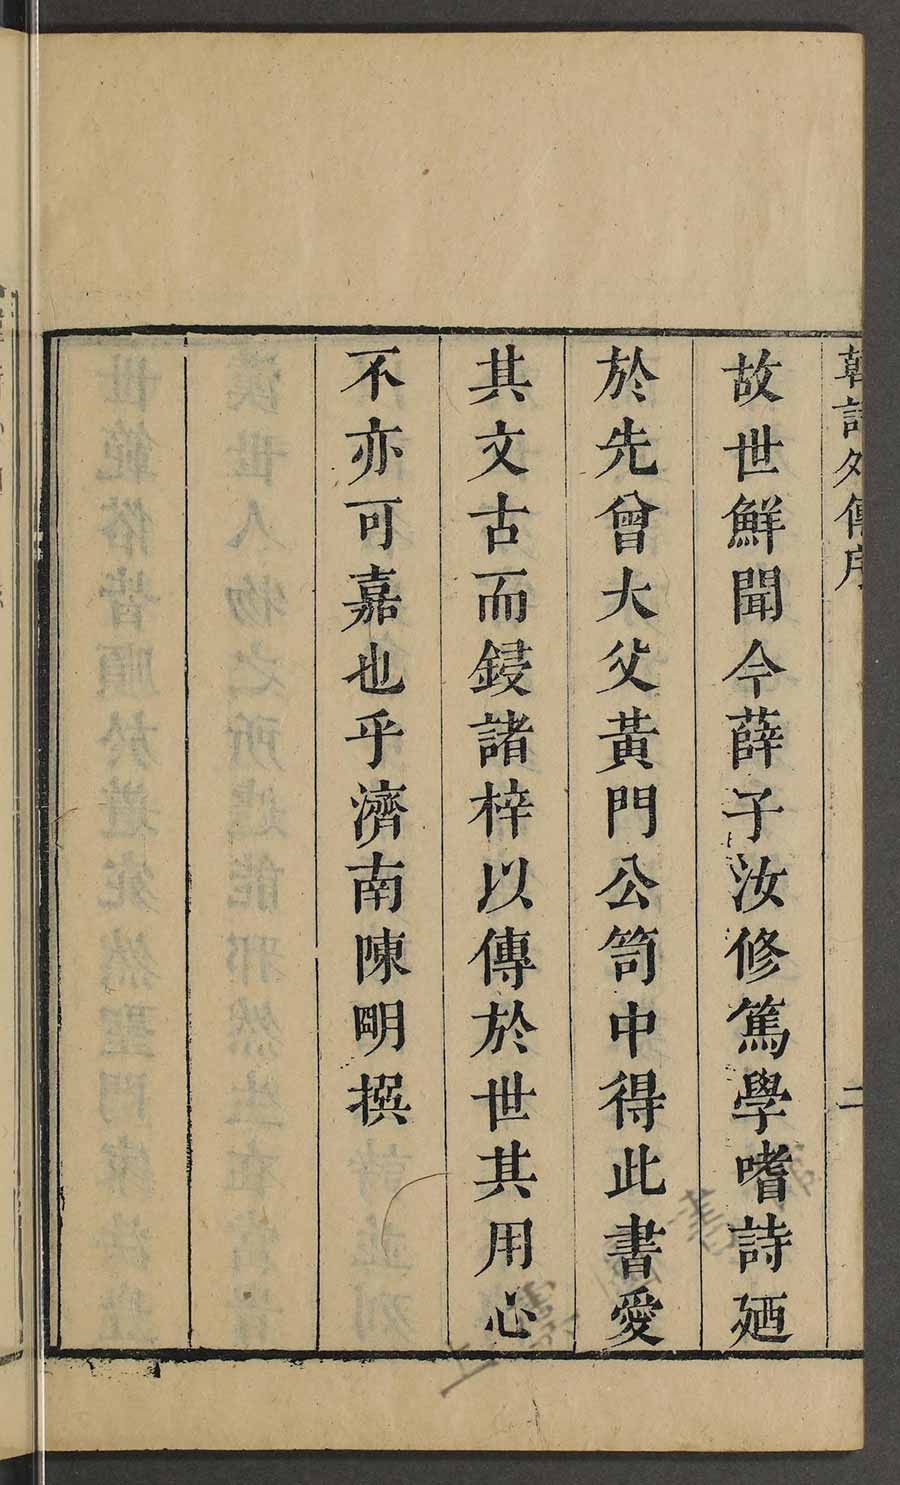 韓詩外傳序 二
故世鮮聞今薛子汝修篤學嗜詩廼
於先曾大父黃門公笥中得此書愛
其文古而鋟諸梓以傳於世其用心
不亦可嘉也乎濟南陳明撰